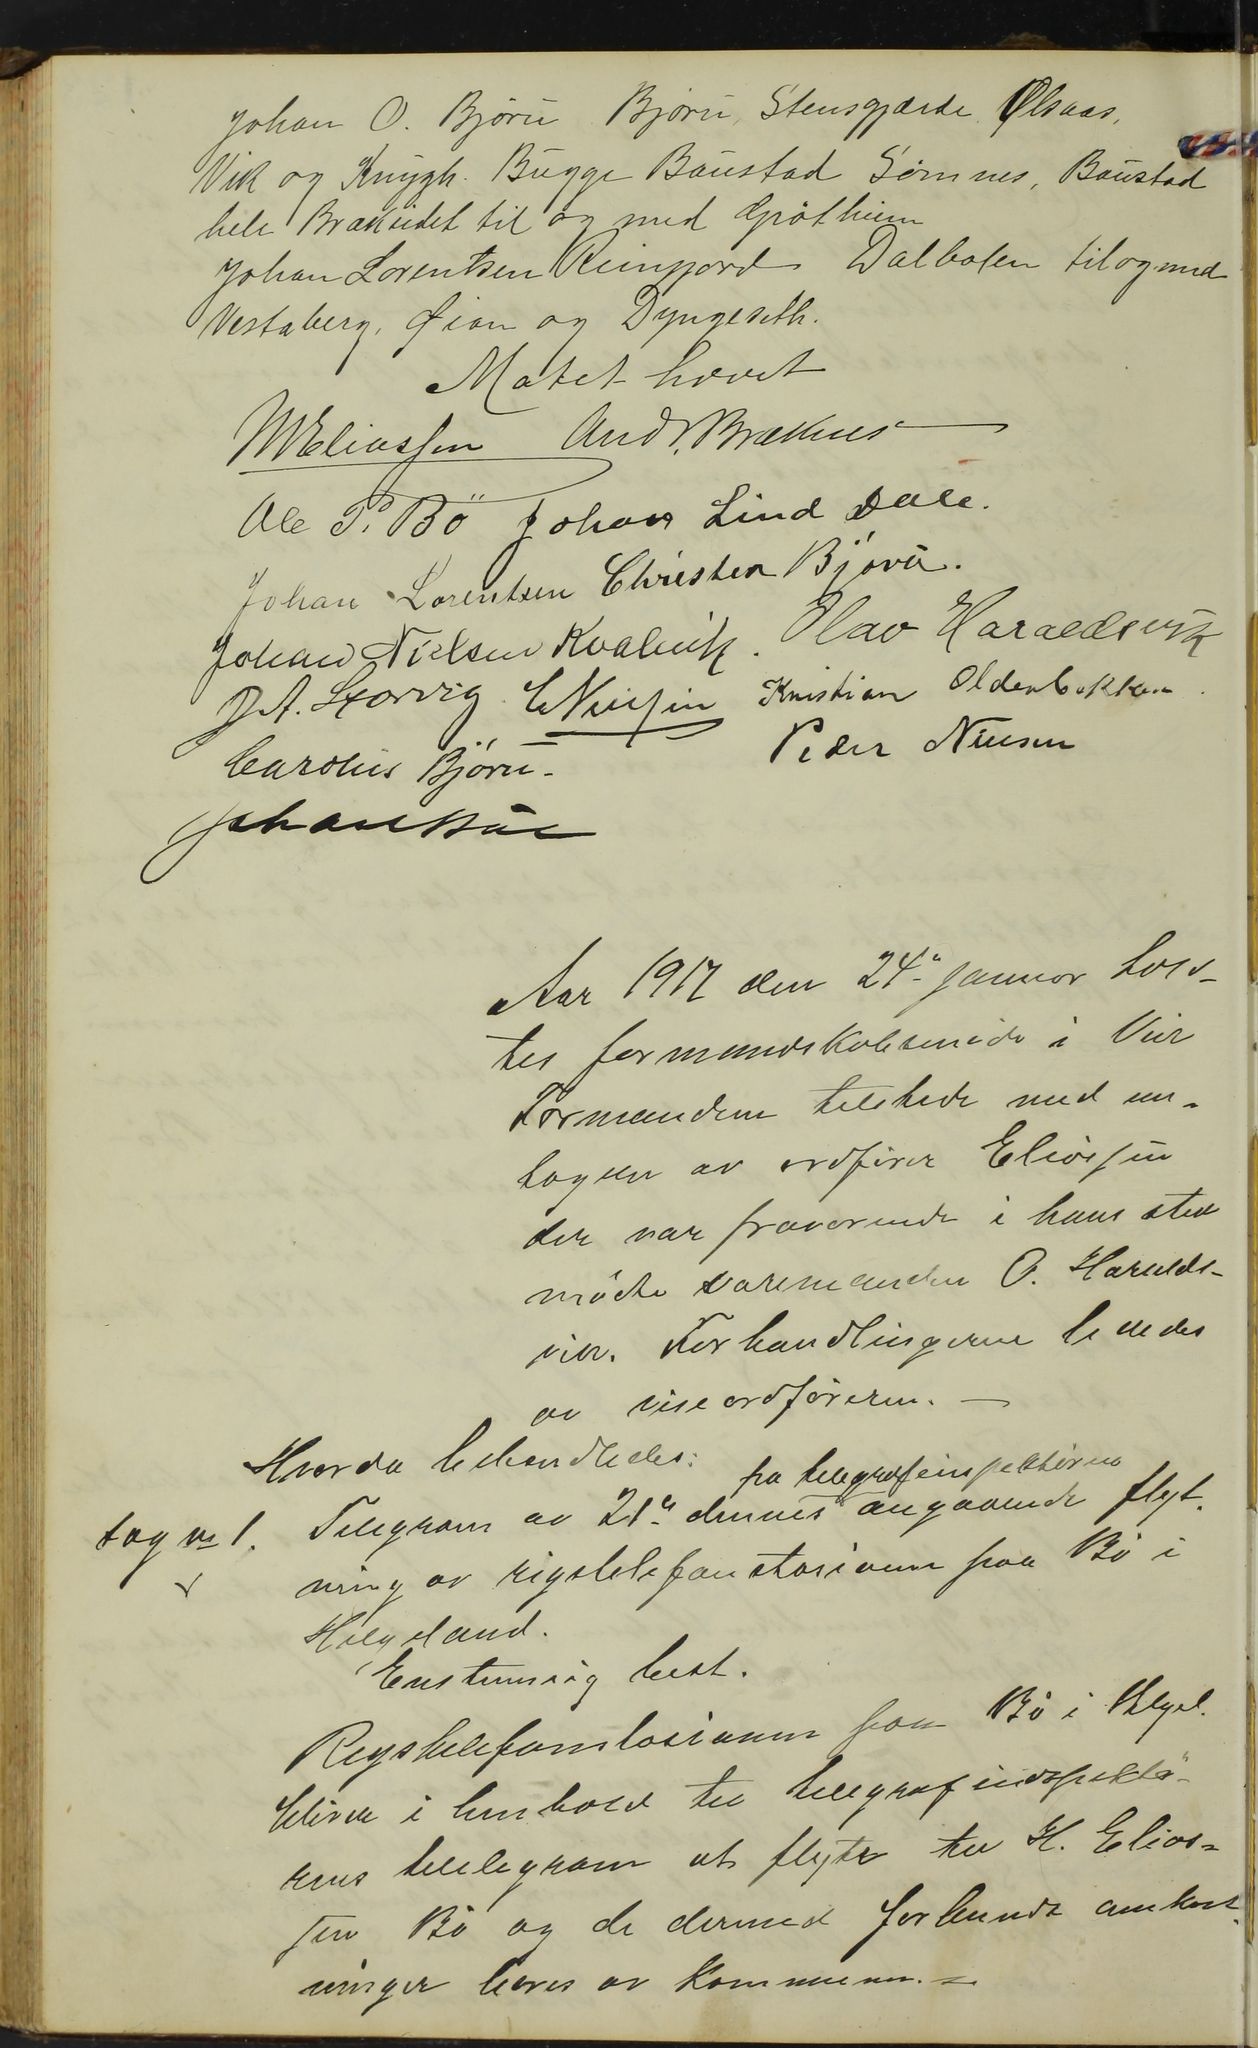 Johan O. Bjørn Bjørn, Stensgjærde, Olsaas,
Vik og Knygh. Bugge Baustad Sømnes, Baustad
hele Brækeidet til og med Grøtheim
Johan Lorentsen Reinfjord Dalbotn til og med
Vestaberg, Øian og Dyngeseth.
Møtet hævet
M Eliassen Andr. Brækus
Ole P. Bö Johan Lind Dale.
Johan Lorentsen Christen Björn.
Johan Nielsen Kvalvik. Olav Haraldsvik
J A. Storvig E Nielsen Kristian Oldenbakken.
Carolius Björn. Peder Nilsen
Johan
Aar 1917 den 24de januar hold-
tes formandskabsmöde i Vik
Formændene tilstede med un-
tagen av ordfører Eliassen
der var fraværende i hans sted
mødte varamanden O. Haralds-
vik. Forhandlingerne lededes
av viseordföreren. —
Hvorda behandledes:
fra telegrafinspektören
Sag nr 1. Telegram av 21de dennes angaaende flyt-
ning av rigstelefonstasionen paa Bö i
Helgeland.
Enstemmig best.
Rigstelefonstasionen paa Bö i Helgel.
bliver i henhold til telegrafindspektö-
rens telelegram at flytte til H. Elias-
sen Bö og de dermed forbundne omkost-
ninger bæres av kommunen. —